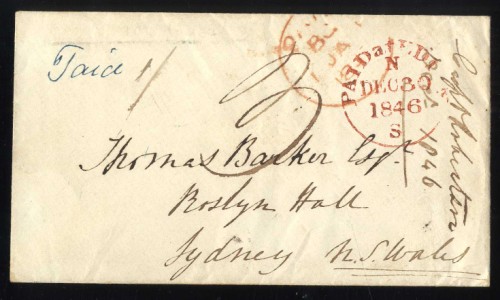 Paid 1/
3
PAID at EDI
N
DEC 30
1846
S
Thomas Barker Esqr
Roslyn Hall
Sydney N. S. Wales
1846